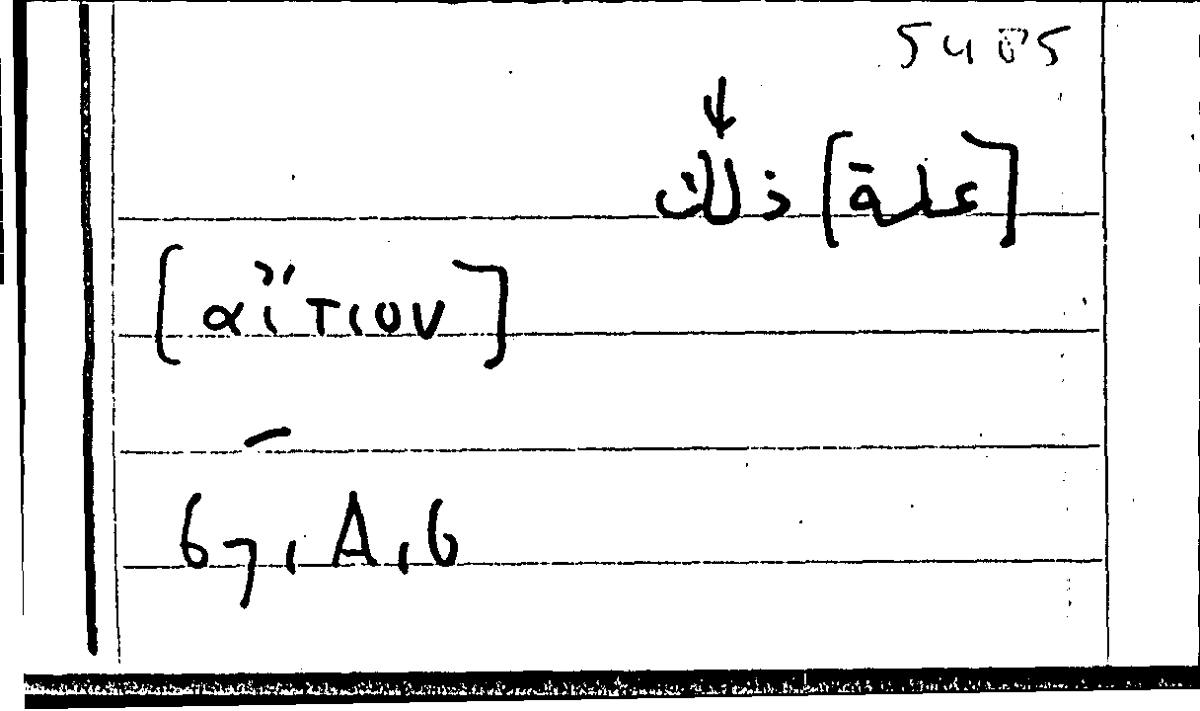 ↓
[علة] ذلك
[αἴτιον]
–
67, A, 6